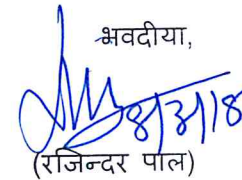 भवदीया,
(रजिन्दर पाल)